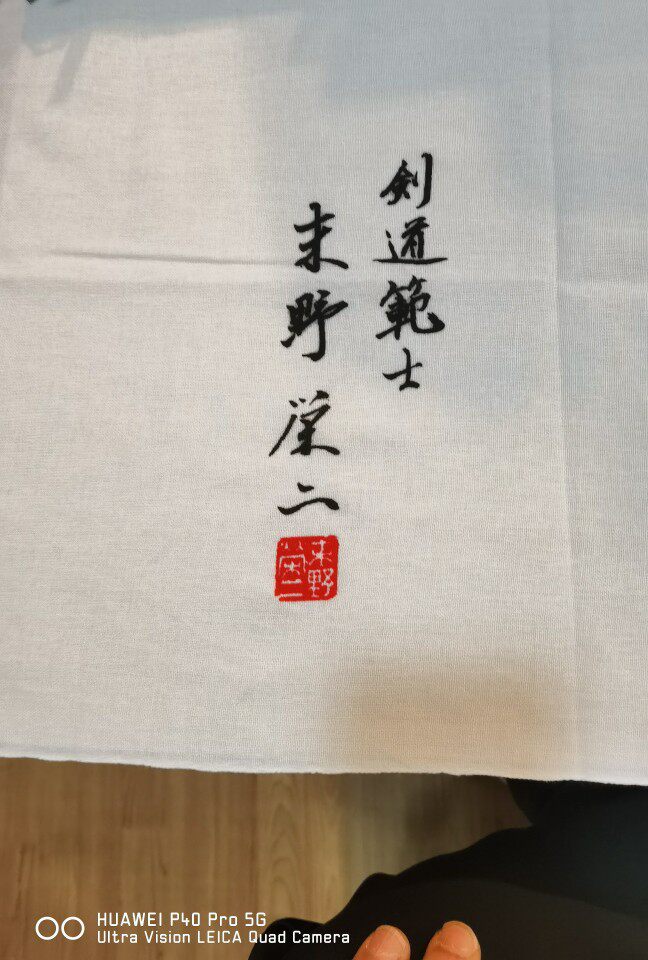 剣道範士
末野栄二
末野
栄二
HUAWEI P40 Pro 5G
Ultra Vision LEICA Quad Camera